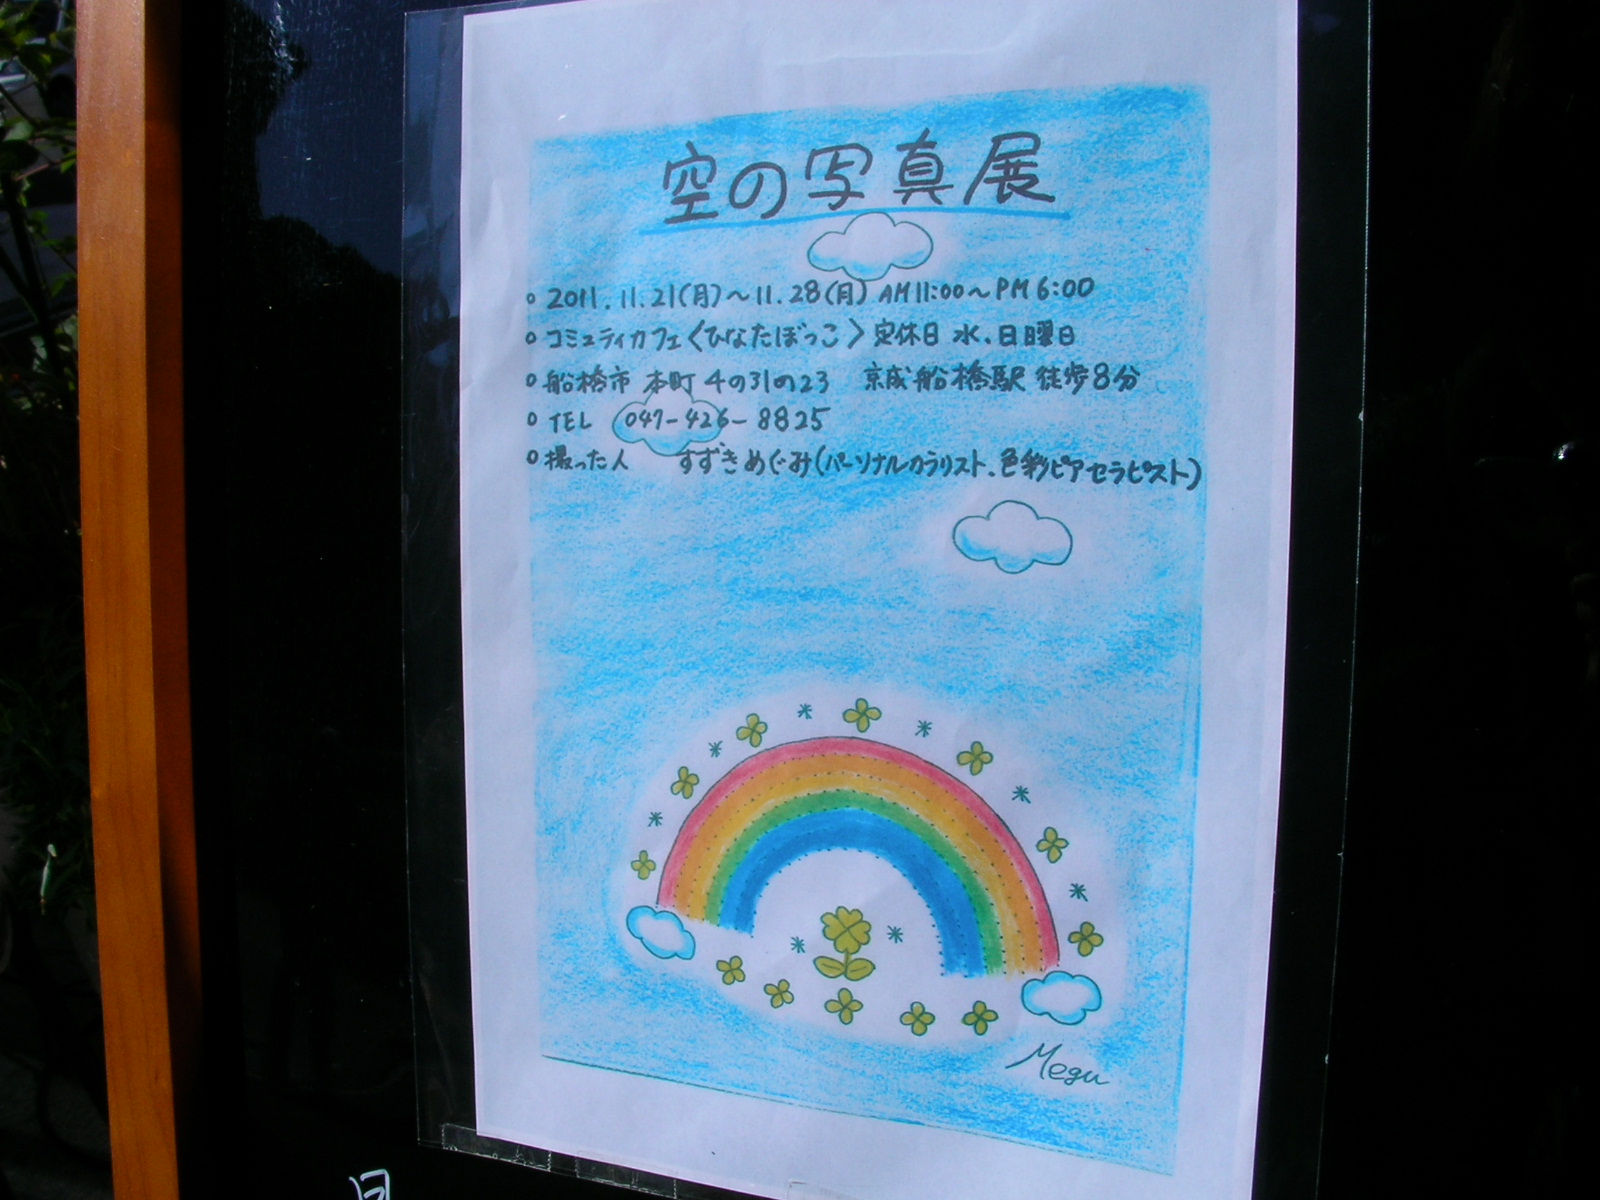 空の写真展
○ 2011.11.21(月)～11.28(月) AM11:00～PM6:00
○ コミュティカフェ〈ひなたぼっこ〉定休日 水.日曜日
○ 船橋市 本町4の31の23 京成船橋駅 徒歩8分
○ TEL 047-426-8825
○ 撮った人 すずきめぐみ(パーソナルカラリスト.色彩ピアセラピスト)
Megu